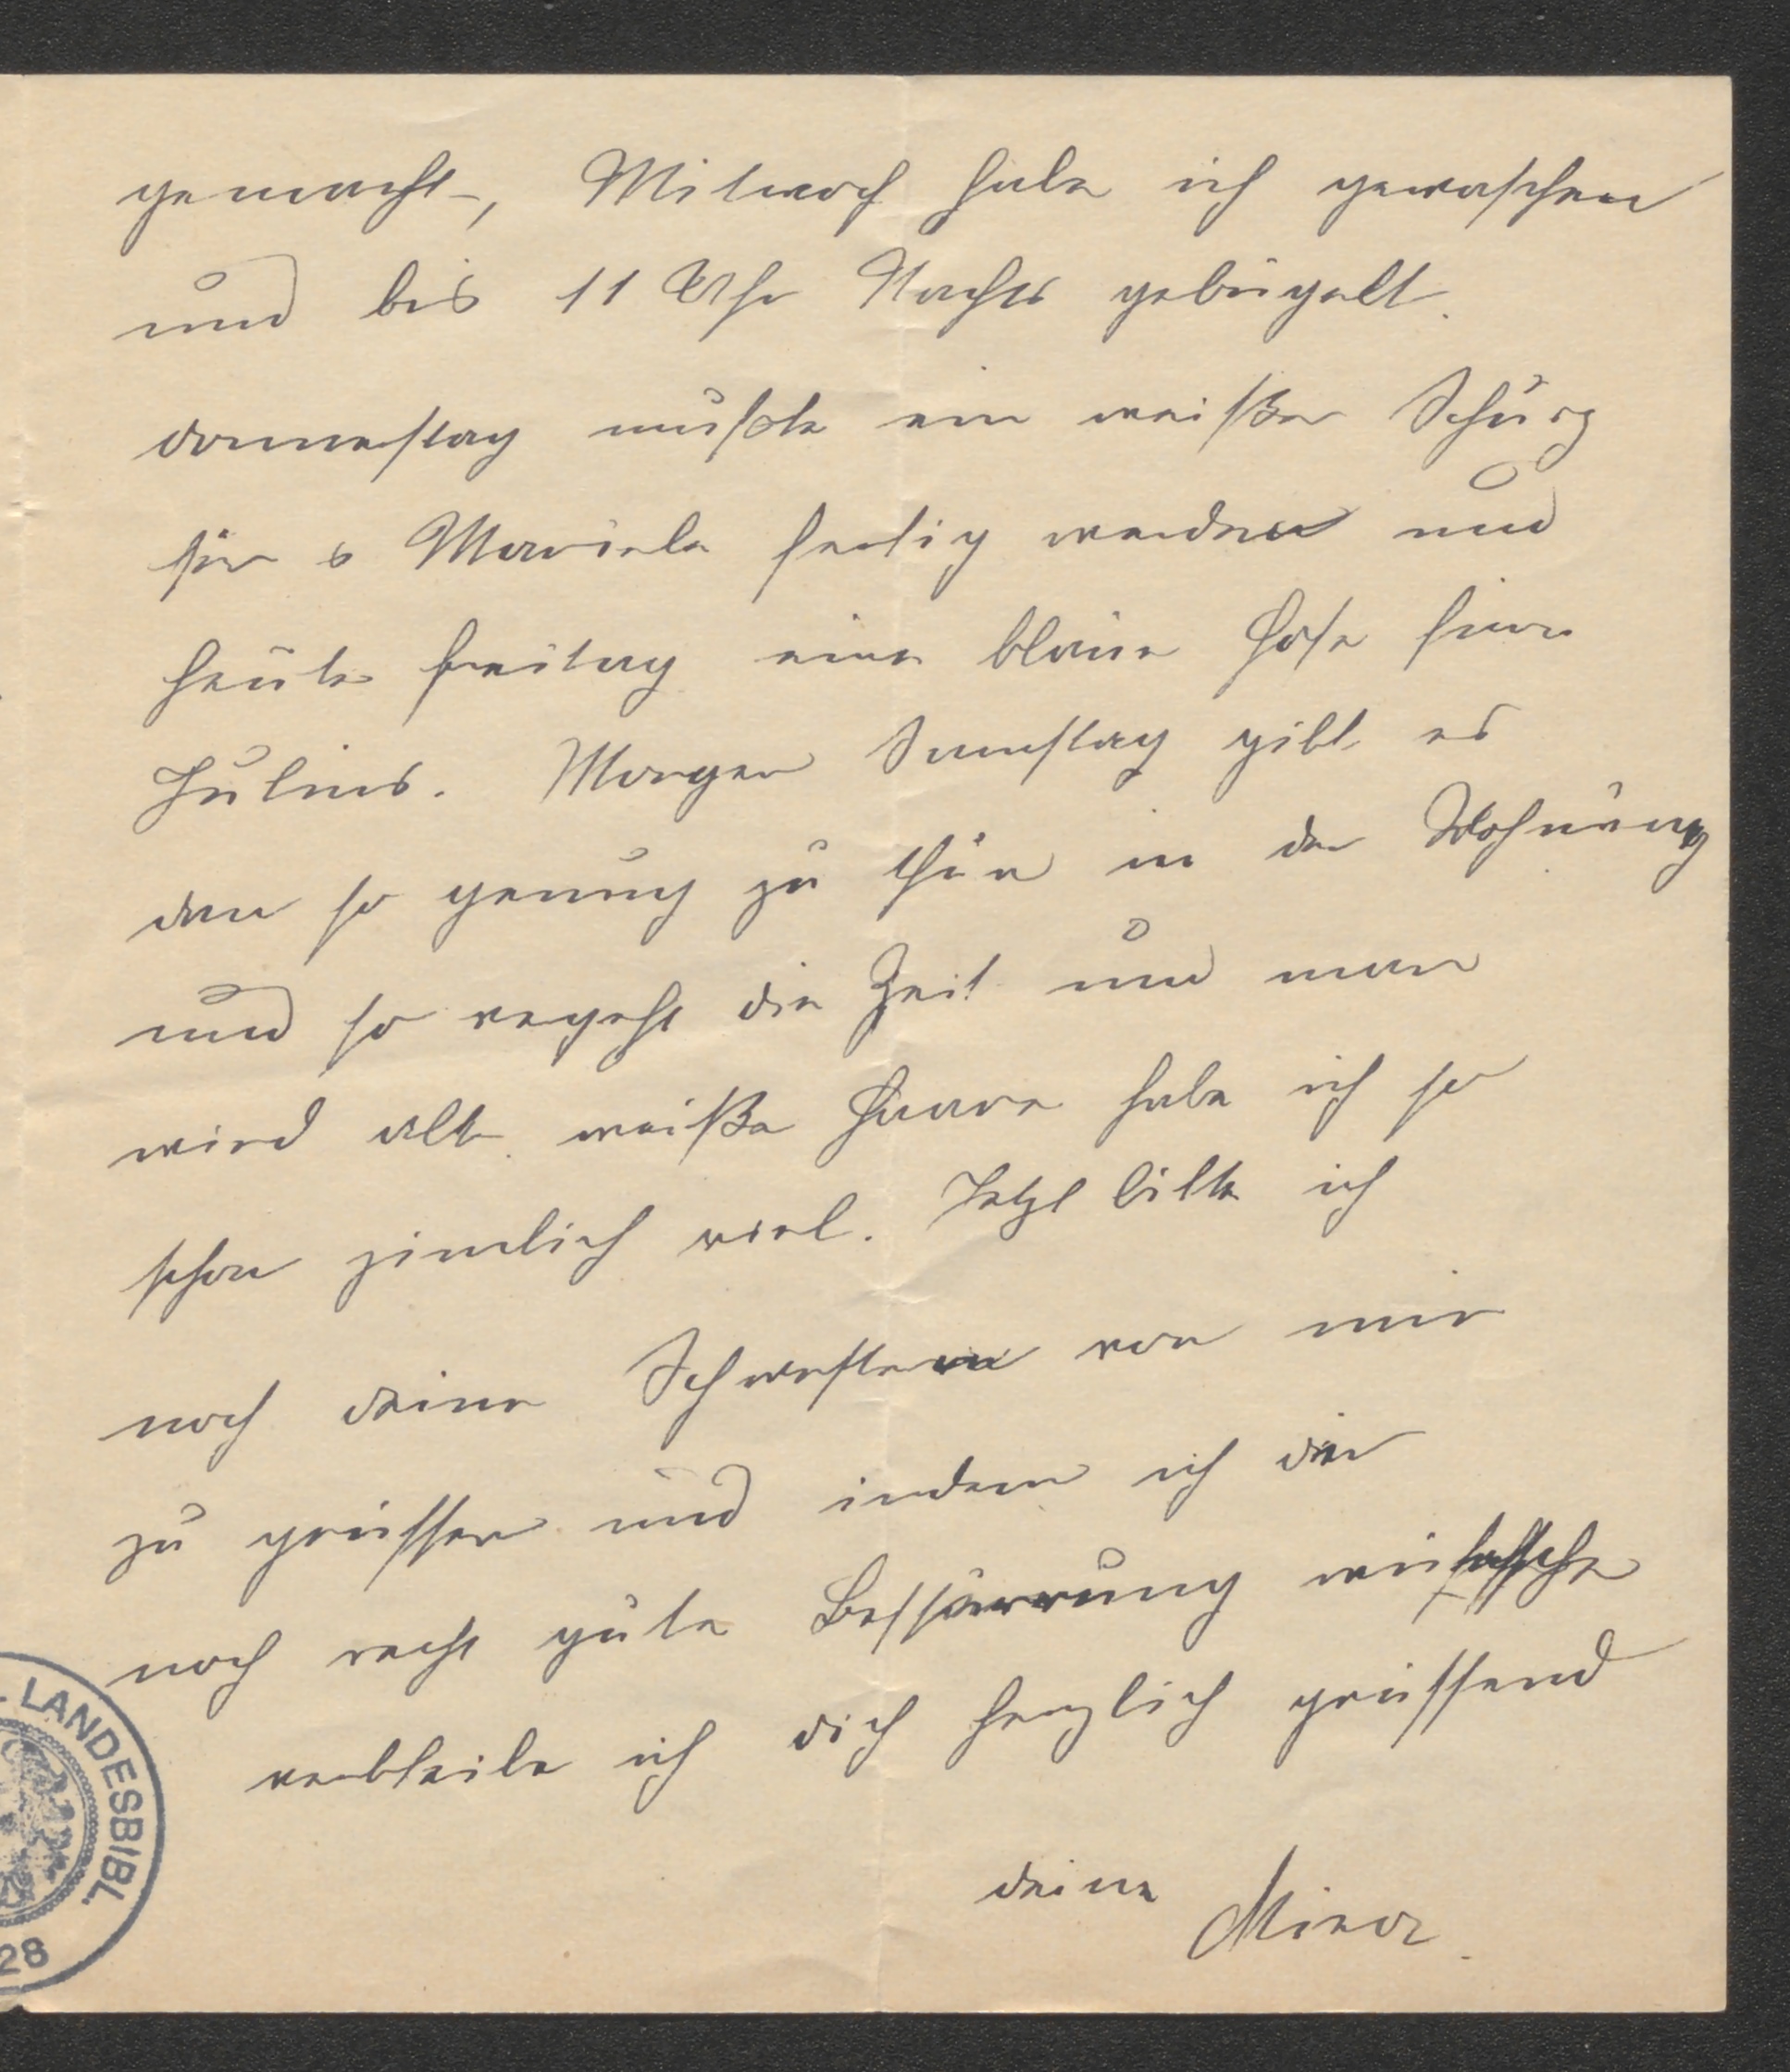 gemacht, Mitwoch habe ich gewaschen
und bis 11 Uhr Nachts gebügelt.
donnerstag mußte ein weißer Schurz
für s Mariele fertig werden und
heute freitag eine blaue Hose für
Julius. Morgen Samstag gibt es
dan so genug zu thun in der Wohnung
und so vergeht die Zeit und man
wird alt weiße Haare habe ich so
schon zimlich viel. Jetzt bitte ich
noch deine Schwestern von mir
zu grüssen und indem ich dir
noch recht gute Bessarrung wünsche
verbleibe ich dich herzlich grüssend
deine Mina.
LANDESBIBL.
28